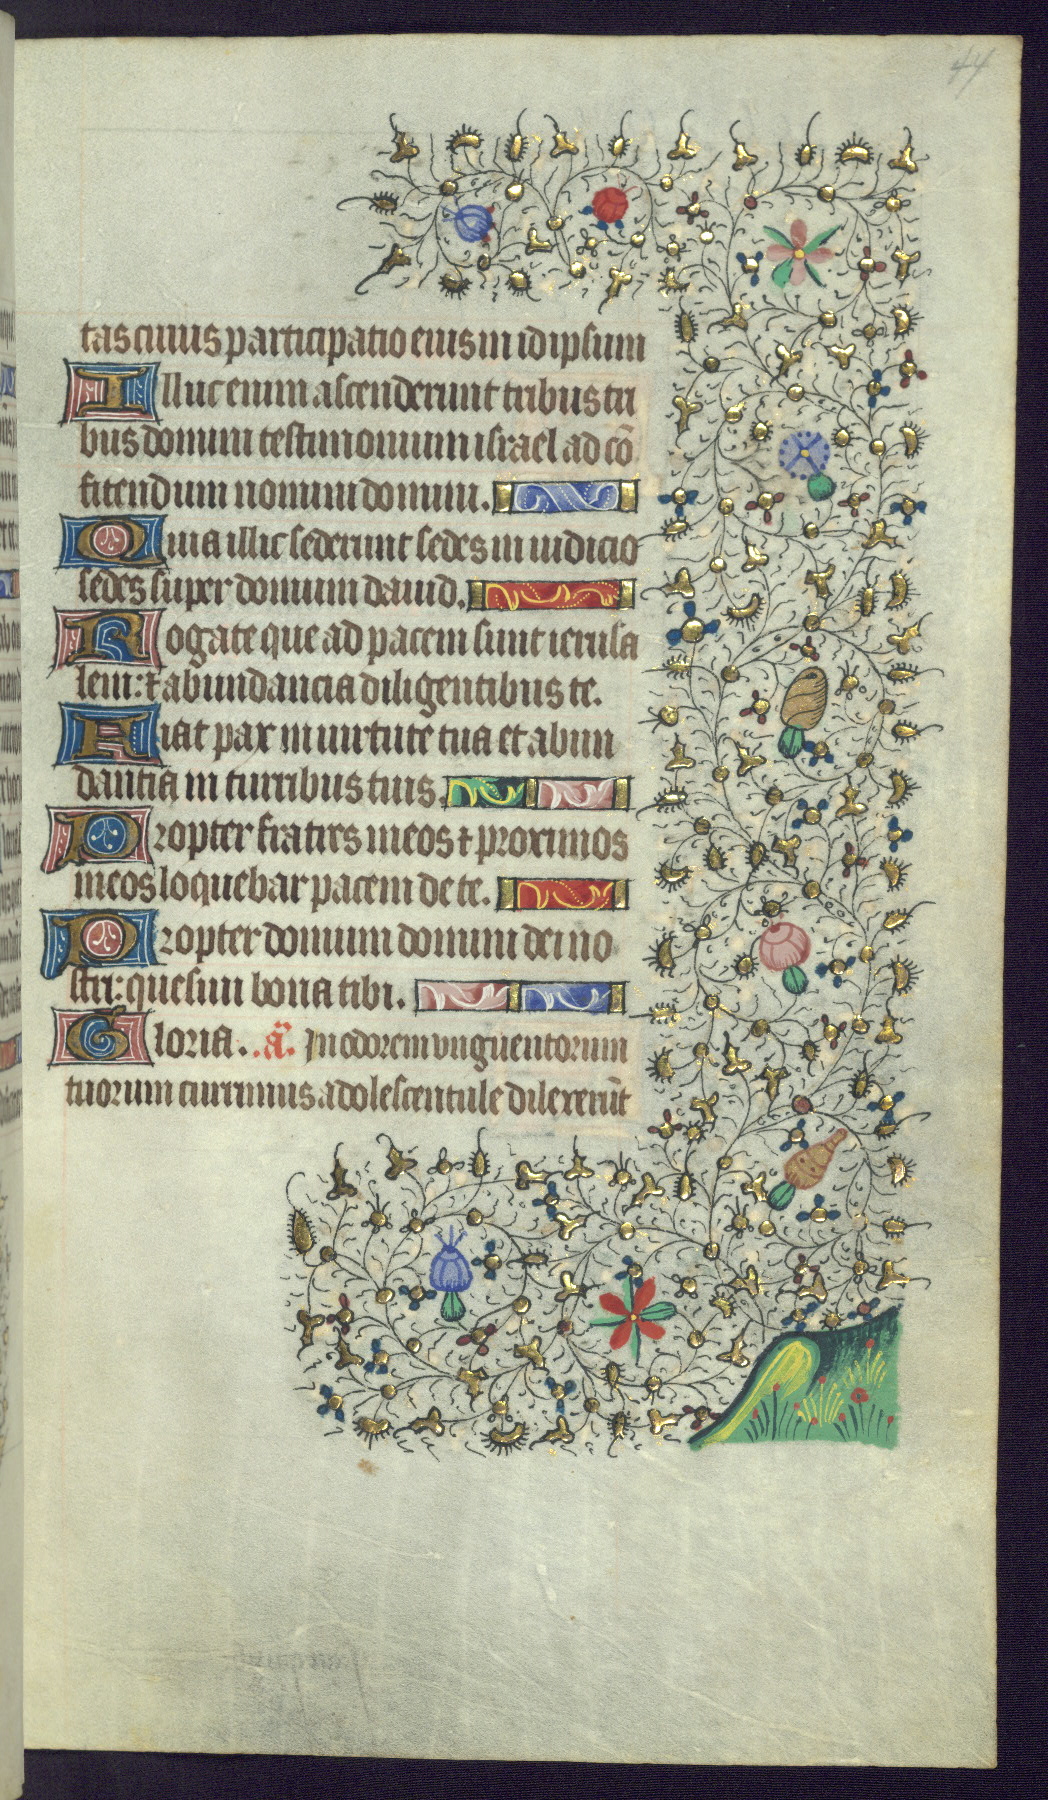 44
tas cuius participatio eius in idipsum
Illuc enim ascenderunt tribus tri
bus domini testimonium israel ad cō
fitendum nomini domini.
Quia illic sederunt sedes in iudicio
sedes super domum dauid.
Rogate que ad pacem sunt ierusa
lem: ⁊ abundancia diligentibus te.
Fiat pax in uirtute tua et abun
dantia in turribus tuis.
Propter fratres meos ⁊ proximos
meos loquebar pacem de te.
Propter domum domini dei no
stri: quesiui bona tibi.
Gloria. .añ. In odorem vnguentorum
tuorum currimus adolescentule dilexerūt